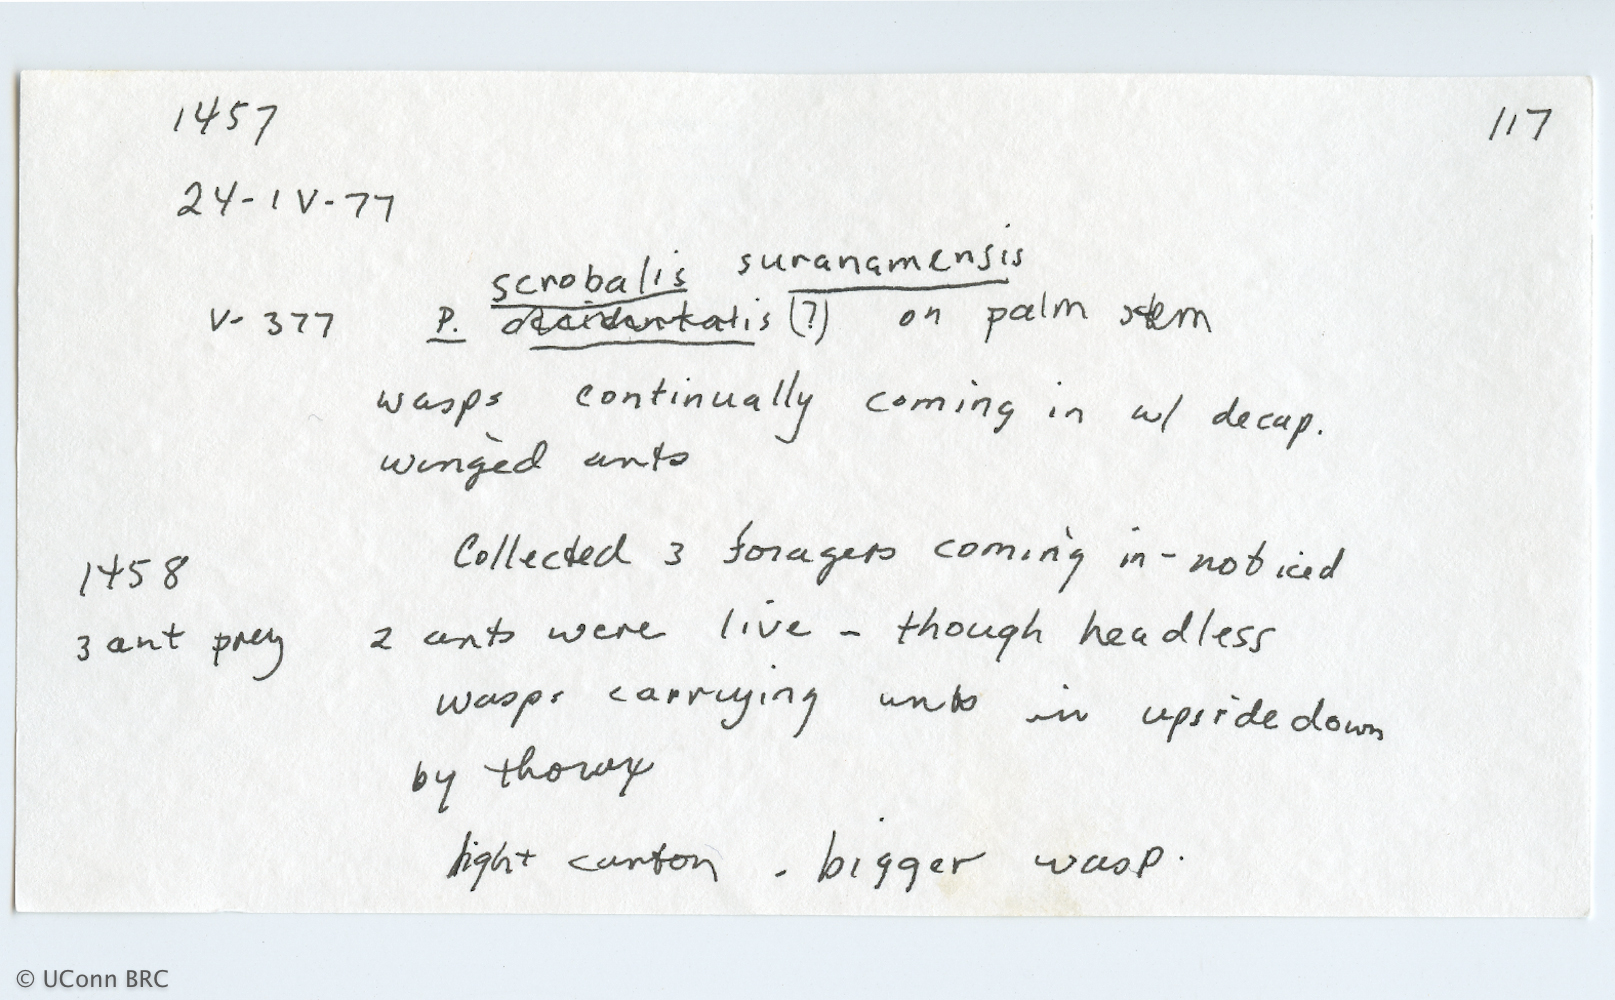 1457
117
24-IV-77
scrobalis suranamensis
V-377 P. occidentalis (?) on palm stem
wasps continually coming in w/ decap.
winged ants
Collected 3 foragers coming in - noticed
1458
3 ant prey 2 ants were live - though headless
wasps carrying ants in upside down
by thorax
light carton - bigger wasp.
© UConn BRC